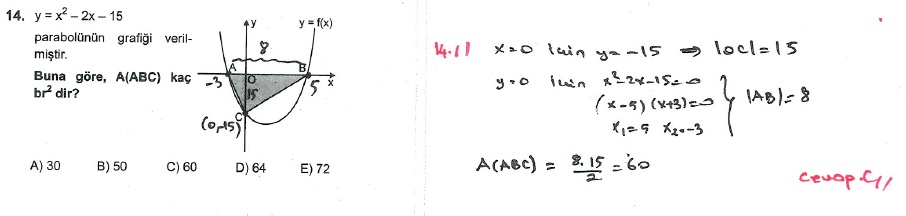 14. y = x² – 2x – 15
parabolünün grafiği veril-
miştir.
Buna göre, A(ABC) kaç
br² dir?
y
y = f(x)
8
A
B
-3
O
x
5
15
C
(0,-15)
A) 30 B) 50 C) 60 D) 64 E) 72
14.) x=0 için y=-15 ⇒ |OC|=15
y=0 için x²-2x-15=0
(x-5)(x+3)=0
x₁=5 x₂=-3
|AB|=8
A(ABC) = 8.15/2 = 60
Cevap.C//